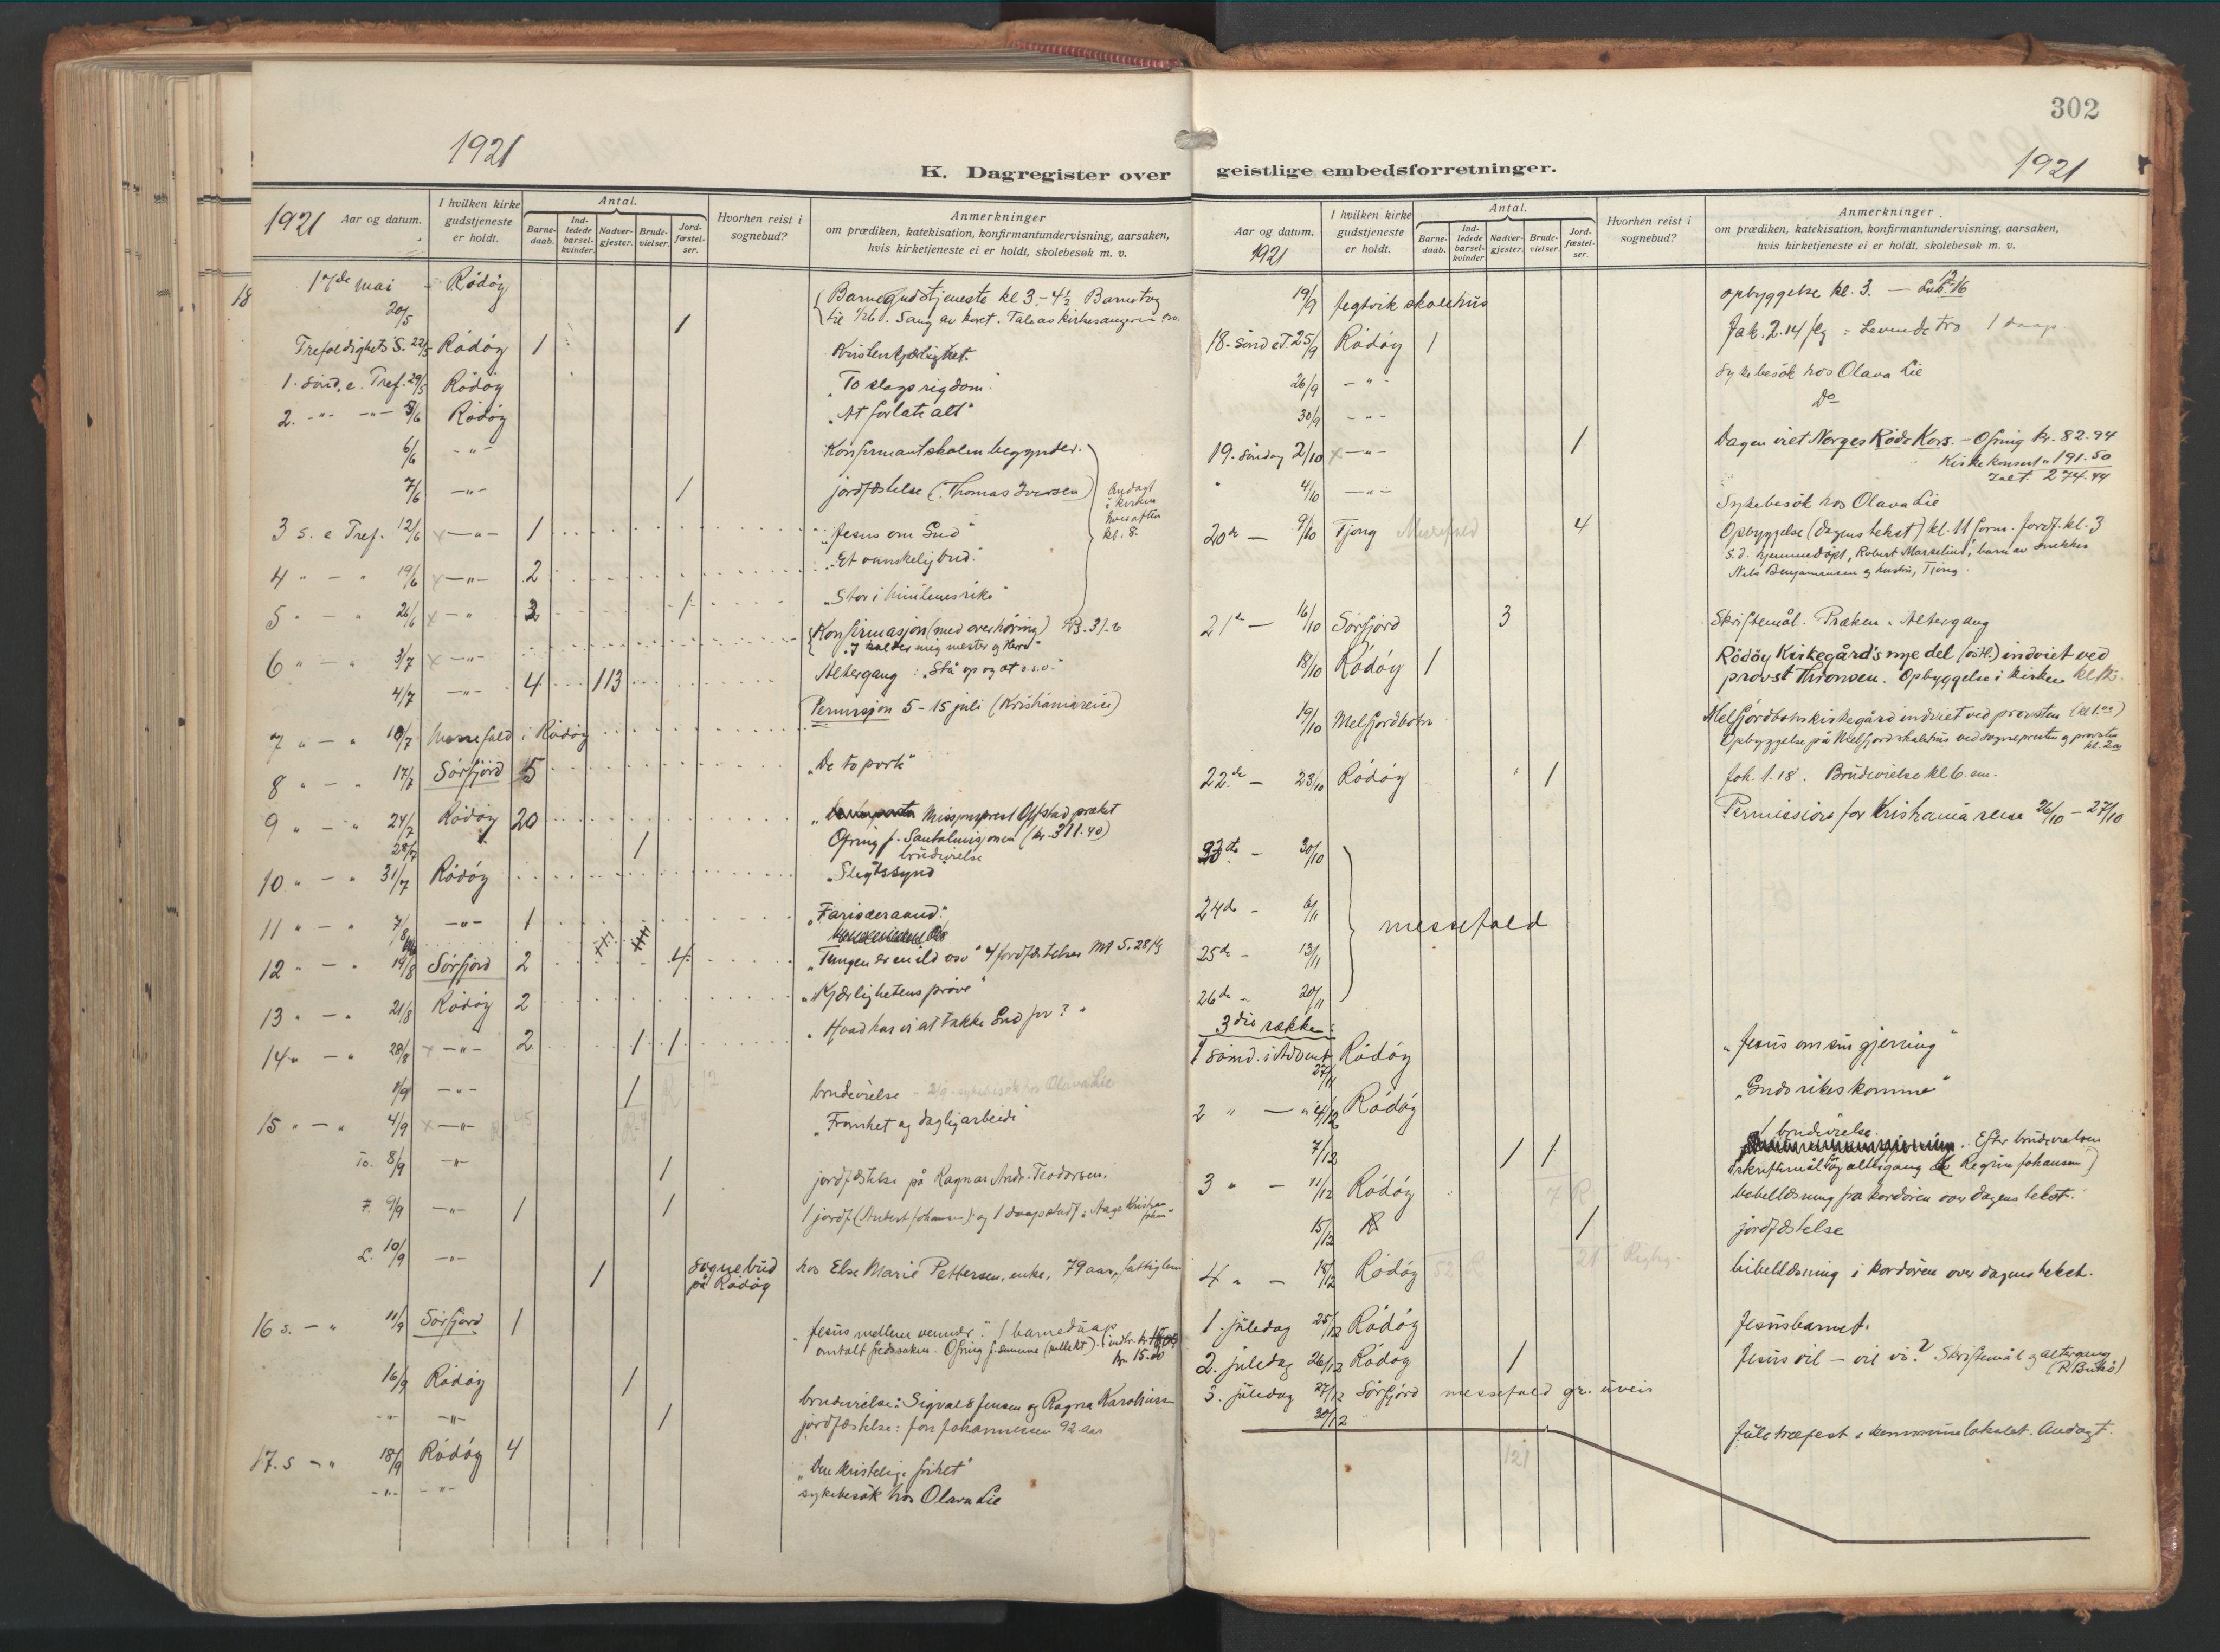 1921
K. Dagregister over
1921 Aar og datum.
I hvilken kirke gudstjeneste er holdt.
Antal.
Barne-daab.
Ind-ledede barsel-kvinder.
Nadver-gjester.
Brude-vielser.
Jord-fæstel-ser.
Hvorhen reist i sognebud?
Anmerkninger
om prædiken, katekisation, konfirmantundervisning, aarsaken,
hvis kirketjeneste ei er holdt, skolebesøk m. v.
18
17de mai - Rödöy Barnegudstjeneste kl 3-4½ Barnetog
20/5 1 Sang av koret.
Trefoldighets S. 22/5 Rödöy 1 Kristenkjærlighet.
1. sönd. e. Tref. 29/5 Rödöy "To slags rigdom."
2. -"- -"- 5/6 Rödöy "At forlate alt"
6/6 -"- Konfirmantskolen begynder.
7/6 -"- 1 jordfæstelse (Thomas Iversen)
Andagt i kirken hver aften kl. 8.
3 s. e Tref. 12/6 x -"- 1 "Jesus om Gud"
4 " - " 19/6 x -"- 2 "Et vanskelig bud."
5 " - " 26/6 x -" 3 1 "Stor i himlenes rike"
6 " - " 3/7 x -"- Konfirmasjon (med overhöring)
"I kalder mig mester og Herre"
4/7 -"- 4 113 Altergang : "Stå op og æt o.s.v."
Permisjon 5-15 juli (Kristianiareise)
7 " - " 10/7 Messefald i Rödöy
8 " - " 17/7 Sörfjord 5 "De to porte"
9 " - " 24/7 Rödöy 20 Missjonsprest Offstad præket
Ofring f. Santalmisjonen (kr. 311.40)
28/7 1 brudevielse
10 " - " 31/7 Rödöy "Slegtssynd"
11 " - " 7/8 -"- 1 "Farisæeraand."
12 " - " 14/8 Sörfjord 2 4 "Tungen er en ild osv" 4 jordfæstelser
13 " - " 21/8 Rödöy 2 "Kjærlighetens pröve"
14 " - " 28/8 x -"- 2 1 1 "Hvad har vi at takke Gud for?"
1/9 -"- 1 brudevielse - 2/9 - sykebesök hos Olava Lie
15 " - " 4/9 x -"- "Fromhet og daglig arbeide"
To. 8/9 -"- 1 jordfæstelse på Ragnar Andr. Teodorsen.
F. 9/9 -"- 1 1 1 jordf.
L. 10/9 -"- 1 sognebud på Rödöy hos Else Marie Pettersen, enke, 79 aar, fattiglem
16 s. - " 11/9 Sörfjord 1 "Jesus mellem venner." 1 barnedaap
omtalt fredssaken. Ofring f. samme (kollekt).
kr 15.00
16/9 Rödöy 1 brudevielse: Sigvald Jensen og Ragna Karoliussen
-"- -"- 1 jordfæstelse: Jon Johannessen 92 aar
17. s - " 18/9 Rödöy 4 "Den kristelige frihet"
-"- -"- sykebesök hos Olava Lie
302
1921
geistlige embedsforretninger.
Aar og datum.
1921
I hvilken kirke gudstjeneste er holdt.
Antal.
Barne-daab.
Ind-ledede barsel-kvinder
Nadver-gjester.
Brude-vielser.
Jord-fæstel-ser.
Hvorhen reist i sognebud?
Anmerkninger
om prædiken, katekisation, konfirmantundervisning, aarsaken,
hvis kirketjeneste ei er holdt, skolebesøk m. v.
19/9 Jegtvik skolehus opbyggelse kl. 3. - Luk. 12 16
18. sönd e T. 25/9 Rödöy 1 Jak. 2.14 flg = Levende tro 1 daap
26/9 -"- Sykebesök hos Olava Lie
30/9 -"- Do
19. söndag 2/10 x -"- 1 Dagen viet Norges Röde Kors. - Ofring kr. 82.94
Kirkekonsert " 191.50
Ialt. 274.44
4/10 -"- Sykebesök hos Olava Lie
20de - 9/10 Tjong Messefald 4 Opbyggelse (dagens tekst) kl. 11 form. Jordf. kl. 3
s.d. hjemmedöpt, Robert Marselius, barn av snekker
Nels Benjaminsen og hustru, Tjong.
21de - 16/10 Sörfjord 3 Skriftemål. Præken. Altergang
18/10 Rödöy 1 Rödöy Kirkegård's nye del (östl.) indviet ved
provst Thronsen. Opbyggelse i kirken kl. 12.
19/10 Melfjordbotn Melfjordbotn kirkegård indviet ved provsten (kl 1.00)
Opbyggelse på Melfjord skolehus ved sogneprest og provsten
22de - 23/10 Rödöy 1 Joh. 1.18. Brudevielse kl 6 em.
Permission for Kristiania reise 26/10 - 27/10
23de - 30/10
24de - 6/11
25de - 13/11
26de - 20/11
messefald
3die række:
1 sönd. i Advent 27/11 Rödöy "Jesus om sin gjerning"
2 " - " 4/12 Rödöy "Guds rikes komme"
7/12 1 1 1 brudevielse.
Efter brudevielsen
skriftemål og altergang Regine Johansen)
3 " - 11/12 Rödöy bibellæsning fra kordören over dagens tekst.
15/12 R 1 jordfæstelse
4 " - 18/12 Rödöy bibellæsning i kordören over dagens tekst.
1. juledag 25/12 Rödöy Jesusbarnet.
2. juledag 26/12 Rödöy 1 Jesus vil - vil vi? Skriftemål og altergang
3. juledag 27/12 Sörfjord messefald gr. uveir
30/12 Juletræfest i kommunelokalet. Andagt.
121